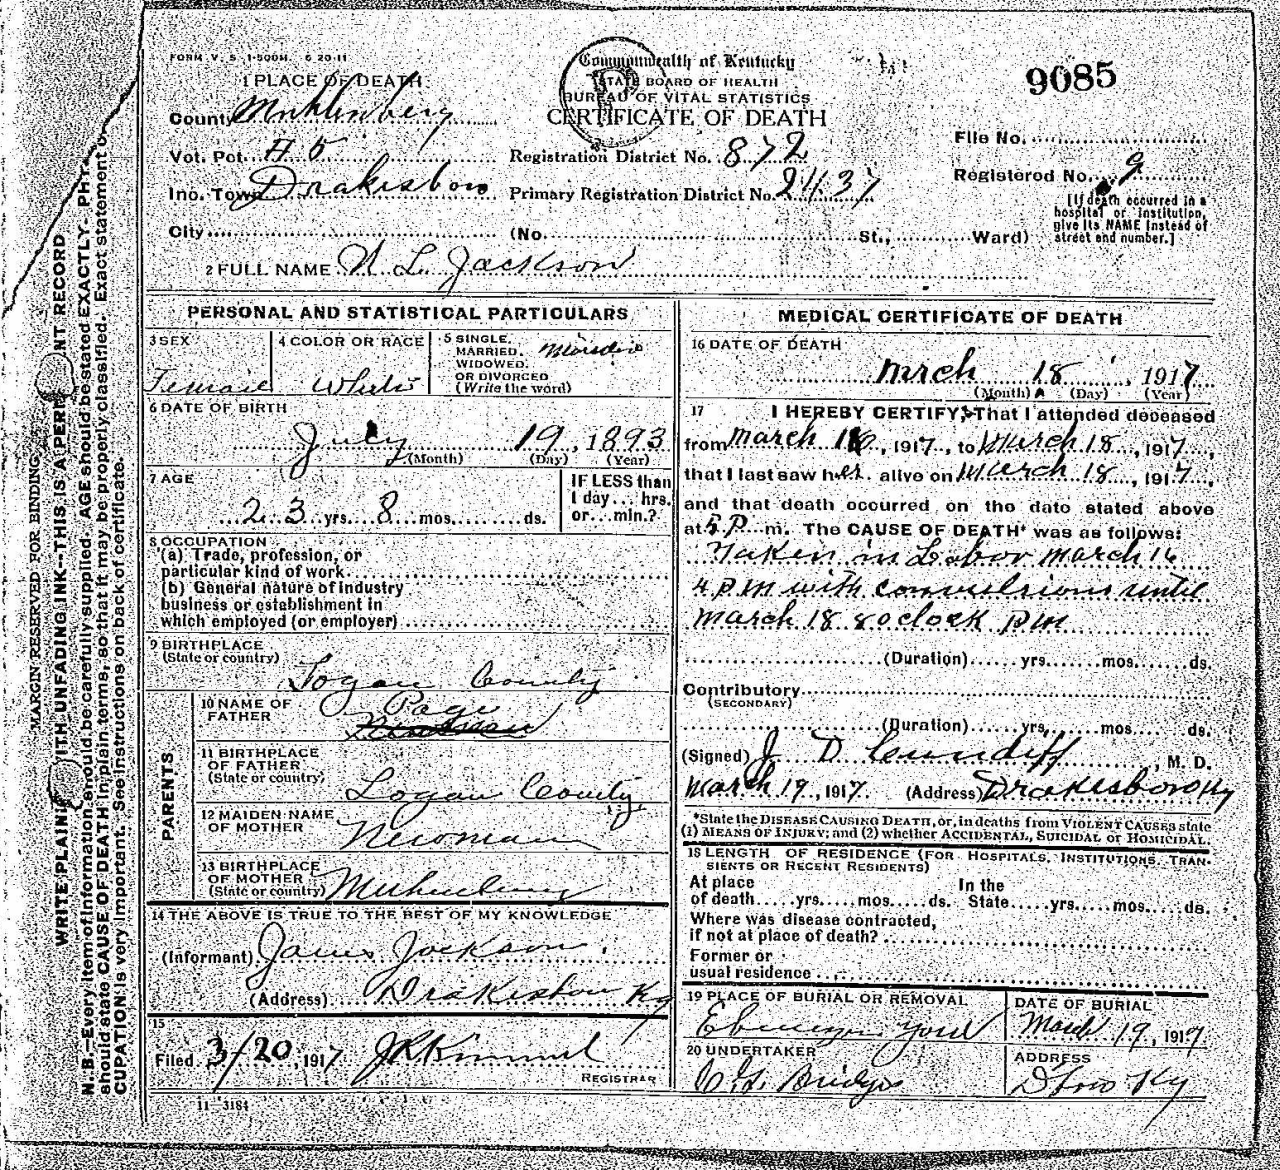 FORM V. S. 1-500M. 6 20-11
Commonwealth of Kentucky
STATE BOARD OF HEALTH
BUREAU OF VITAL STATISTICS
CERTIFICATE OF DEATH
9085
1 PLACE OF DEATH
County Muhlenberg
Vot. Pct. # 5
Registration District No. 872
File No.
Inc. Town Drakesboro
Primary Registration District No. 2437
Registered No. 9
[If death occurred in a
hospital or institution,
give its NAME instead of
street and number.]
City (No. St., Ward)
2 FULL NAME N L Jackson
PERSONAL AND STATISTICAL PARTICULARS
3 SEX
Female
4 COLOR OR RACE
White
5 SINGLE,
MARRIED,
WIDOWED,
OR DIVORCED
(Write the word)
Married
6 DATE OF BIRTH
July 19, 1893
(Month) (Day) (Year)
7 AGE
23 yrs. 8 mos. ds.
IF LESS than
1 day... hrs.
or... min.?
8 OCCUPATION
(a) Trade, profession, or
particular kind of work
(b) General nature of industry
business or establishment in
which employed (or employer)
9 BIRTHPLACE
(State or country)
Logan County
PARENTS
10 NAME OF
FATHER
Page
11 BIRTHPLACE
OF FATHER
(State or country)
Logan County
12 MAIDEN NAME
OF MOTHER
Newman
13 BIRTHPLACE
OF MOTHER
(State or country)
14 THE ABOVE IS TRUE TO THE BEST OF MY KNOWLEDGE
(Informant) James Jackson
(Address) Drakesboro Ky
15
Filed 3/20, 1917 J R Kimmel
REGISTRAR
11-3184
MEDICAL CERTIFICATE OF DEATH
16 DATE OF DEATH
March 18, 1917
(Month) (Day) (Year)
17 I HEREBY CERTIFY, That I attended deceased
from March 16, 1917, to March 18, 1917,
that I last saw her alive on March 18, 1917,
and that death occurred on the date stated above
at 5 P m. The CAUSE OF DEATH* was as follows:
Taken in Labor March 16
4 P M with convulsions until
March 18 8 oclock PM
(Duration) yrs. mos. ds.
Contributory
(SECONDARY)
(Duration) yrs. mos. ds.
(Signed) J D Cundiff, M. D.
March 19, 1917. (Address) Drakesboro Ky
*State the DISEASE CAUSING DEATH, or, in deaths from VIOLENT CAUSES state
(1) MEANS OF INJURY; and (2) whether ACCIDENTAL, SUICIDAL or HOMICIDAL.
18 LENGTH OF RESIDENCE (FOR HOSPITALS, INSTITUTIONS, TRAN-
SIENTS OR RECENT RESIDENTS)
At place
of death yrs. mos. ds.
In the
State yrs. mos. ds.
Where was disease contracted,
if not at place of death?
Former or
usual residence
19 PLACE OF BURIAL OR REMOVAL
Ebenezer Yard
DATE OF BURIAL
March 19, 1917
20 UNDERTAKER
Bridges
ADDRESS
D'boro Ky
MARGIN RESERVED FOR BINDING
WRITE PLAINLY WITH UNFADING INK--THIS IS A PERMANENT RECORD
N. B.--Every item of information should be carefully supplied. AGE should be stated EXACTLY.
should state CAUSE OF DEATH in plain terms, so that it may be properly classified. Exact statement
CUPATION is very important. See instructions on back of certificate.